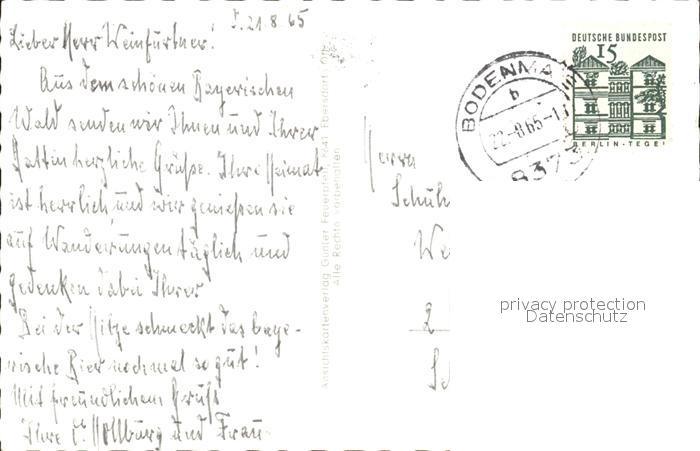 21.8.65
Lieber Herr Weinfurtner!
Aus dem schönen Bayerischen
Wald senden wir Ihnen und Ihrer
Gattin herzliche Grüße. Ihre Heimat
ist herrlich und wir genießen sie
auf Wanderungen täglich und
gedenken dabei Ihrer
Bei der Hitze schmeckt das baye-
rische Bier nochmal so gut!
Mit freundlichem Gruß
Ihre und Frau
Ansichtskartenverlag Gunter Feuerstein, 8641 Ebersdorf
Alle Rechte vorbehalten
Herrn
Schuh
We
2
Sc
BODENMA
b
22.-8.65-1
837
DEUTSCHE BUNDESPOST
15
BERLIN-TEGEL
privacy protection
Datenschutz